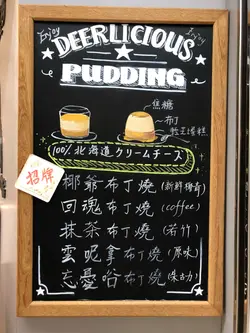 Enjoy Enjoy
DEERLICIOUS
PUDDING
焦糖
布丁
100% 北海道クリームチーズ
招牌
椰爺布丁燒 (新鮮椰香)
回魂布丁燒 (coffee)
抹茶布丁燒 (若竹)
雲呢拿布丁燒 (原味)
忘憂谷布丁燒 (朱古力)